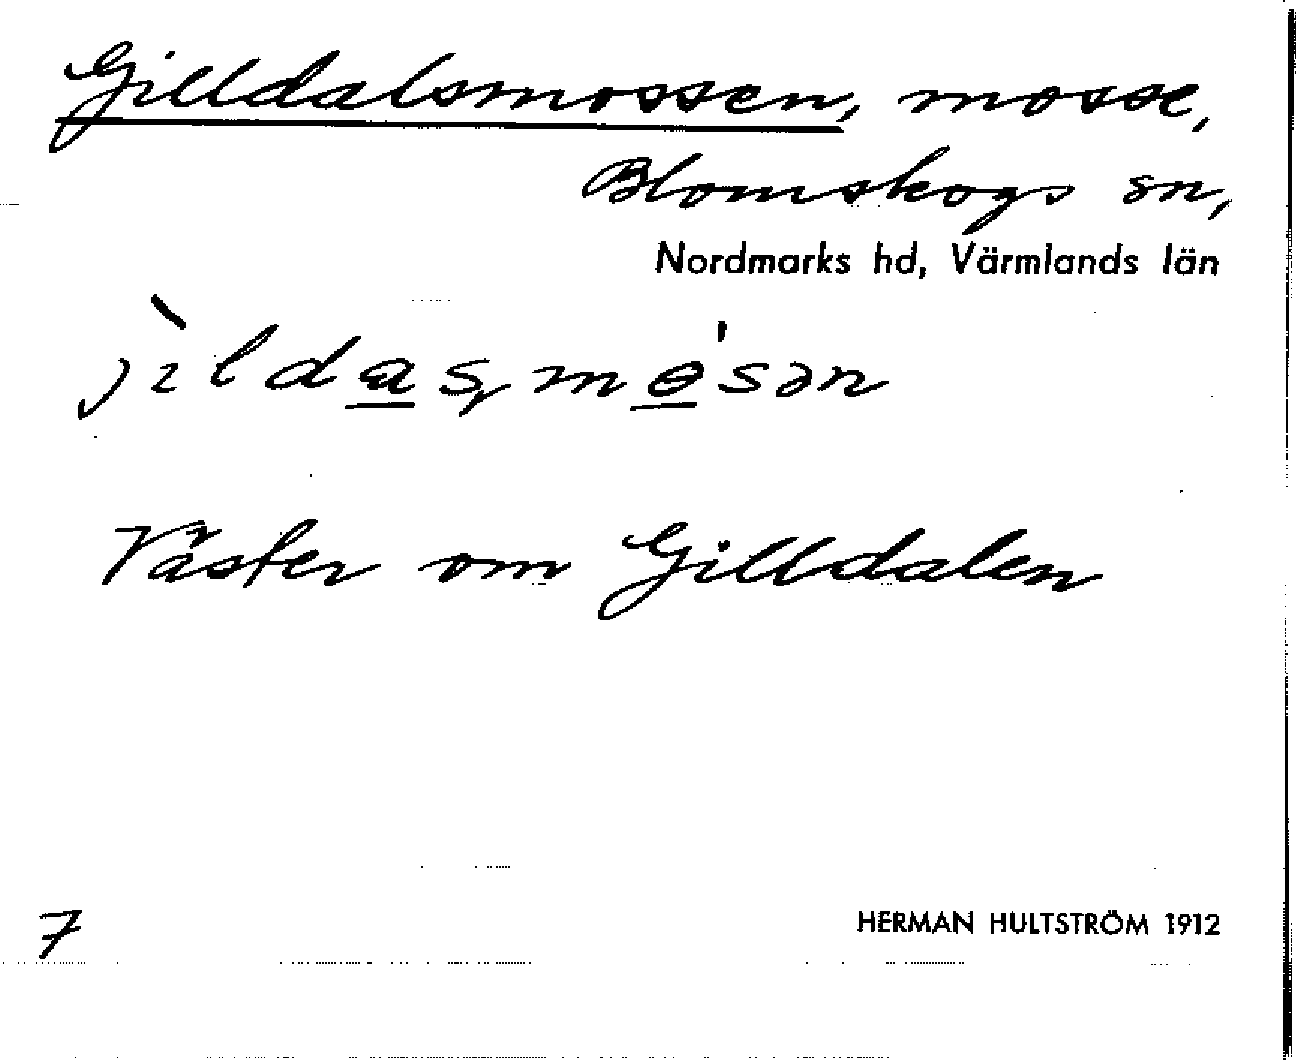 Gilldalsmossen, mosse,
Blomskogs sn,
Nordmarks hd, Värmlands län
Väster om Gilldalen
7
HERMAN HULTSTRÖM 1912